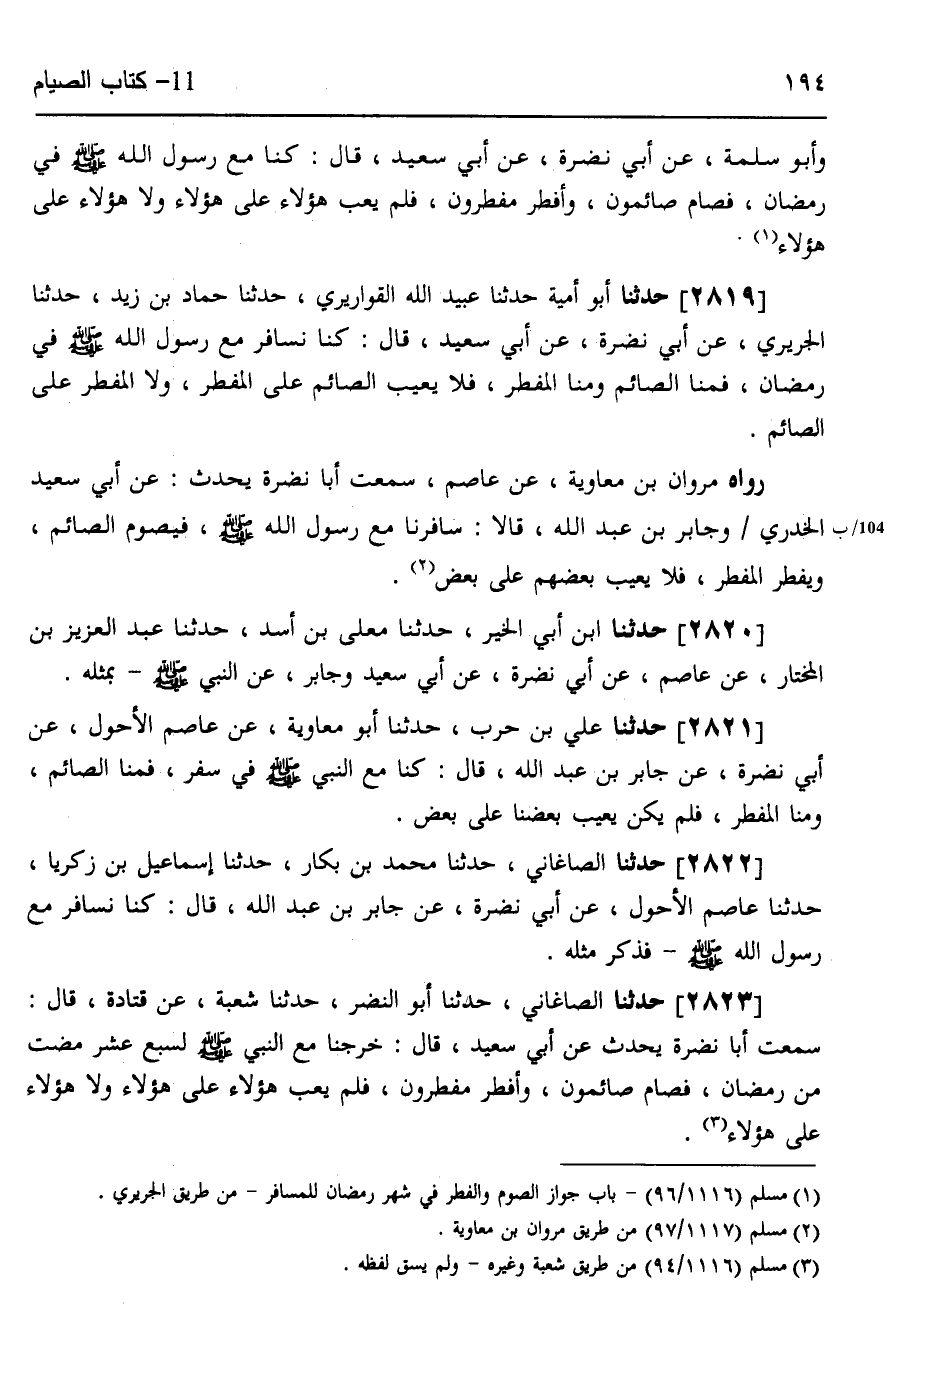 ١٩٤
11- كتاب الصيام
وأبو سلمة ، عن أبي نضرة ، عن أبي سعيد ، قال : كنا مع رسول الله ﷺ في
رمضان ، فصام صائمون ، وأفطر مفطرون ، فلم يعب هؤلاء على هؤلاء ولا هؤلاء على
هؤلاء(١) .
[٢٨١٩] حدثنا أبو أمية حدثنا عبيد الله القواريري ، حدثنا حماد بن زيد ، حدثنا
الجريري ، عن أبي نضرة ، عن أبي سعيد ، قال : كنا نسافر مع رسول الله ﷺ في
رمضان ، فمنا الصائم ومنا المفطر ، فلا يعيب الصائم على المفطر ، ولا المفطر على
الصائم .
رواه مروان بن معاوية ، عن عاصم ، سمعت أبا نضرة يحدث : عن أبي سعيد
104/ب الخدري / وجابر بن عبد الله ، قالا : سافرنا مع رسول الله ﷺ ، فيصوم الصائم ،
ويفطر المفطر ، فلا يعيب بعضهم على بعض(٢) .
[٢٨٢٠] حدثنا ابن أبي الخير ، حدثنا معلى بن أسد ، حدثنا عبد العزيز بن
المختار ، عن عاصم ، عن أبي نضرة ، عن أبي سعيد وجابر ، عن النبي ﷺ - بمثله .
[٢٨٢١] حدثنا علي بن حرب ، حدثنا أبو معاوية ، عن عاصم الأحول ، عن
أبي نضرة ، عن جابر بن عبد الله ، قال : كنا مع النبي ﷺ في سفر ، فمنا الصائم ،
ومنا المفطر ، فلم يكن يعيب بعضنا على بعض .
[٢٨٢٢] حدثنا الصاغاني ، حدثنا محمد بن بكار ، حدثنا إسماعيل بن زكريا ،
حدثنا عاصم الأحول ، عن أبي نضرة ، عن جابر بن عبد الله ، قال : كنا نسافر مع
رسول الله ﷺ - فذكر مثله .
[٢٨٢٣] حدثنا الصاغاني ، حدثنا أبو النضر ، حدثنا شعبة ، عن قتادة ، قال :
سمعت أبا نضرة يحدث عن أبي سعيد ، قال : خرجنا مع النبي ﷺ لسبع عشر مضت
من رمضان ، فصام صائمون ، وأفطر مفطرون ، فلم يعب هؤلاء على هؤلاء ولا هؤلاء
على هؤلاء(٣) .
(١) مسلم (٩٦/١١١٦) - باب جواز الصوم والفطر في شهر رمضان للمسافر - من طريق الجريري .
(٢) مسلم (٩٧/١١١٧) من طريق مروان بن معاوية .
(٣) مسلم (٩٤/١١١٦) من طريق شعبة وغيره - ولم يسق لفظه .